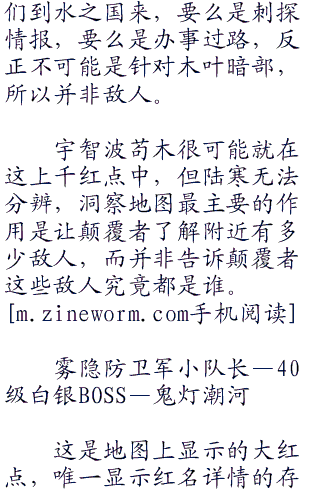 们到水之国来，要么是刺探
情报，要么是办事过路，反
正不可能是针对木叶暗部，
所以并非敌人。
宇智波苟木很可能就在
这上千红点中，但陆寒无法
分辨，洞察地图最主要的作
用是让颠覆者了解附近有多
少敌人，而并非告诉颠覆者
这些敌人究竟都是谁。
[m.zineworm.com手机阅读]
雾隐防卫军小队长—40
级白银BOSS—鬼灯潮河
这是地图上显示的大红
点，唯一显示红名详情的存